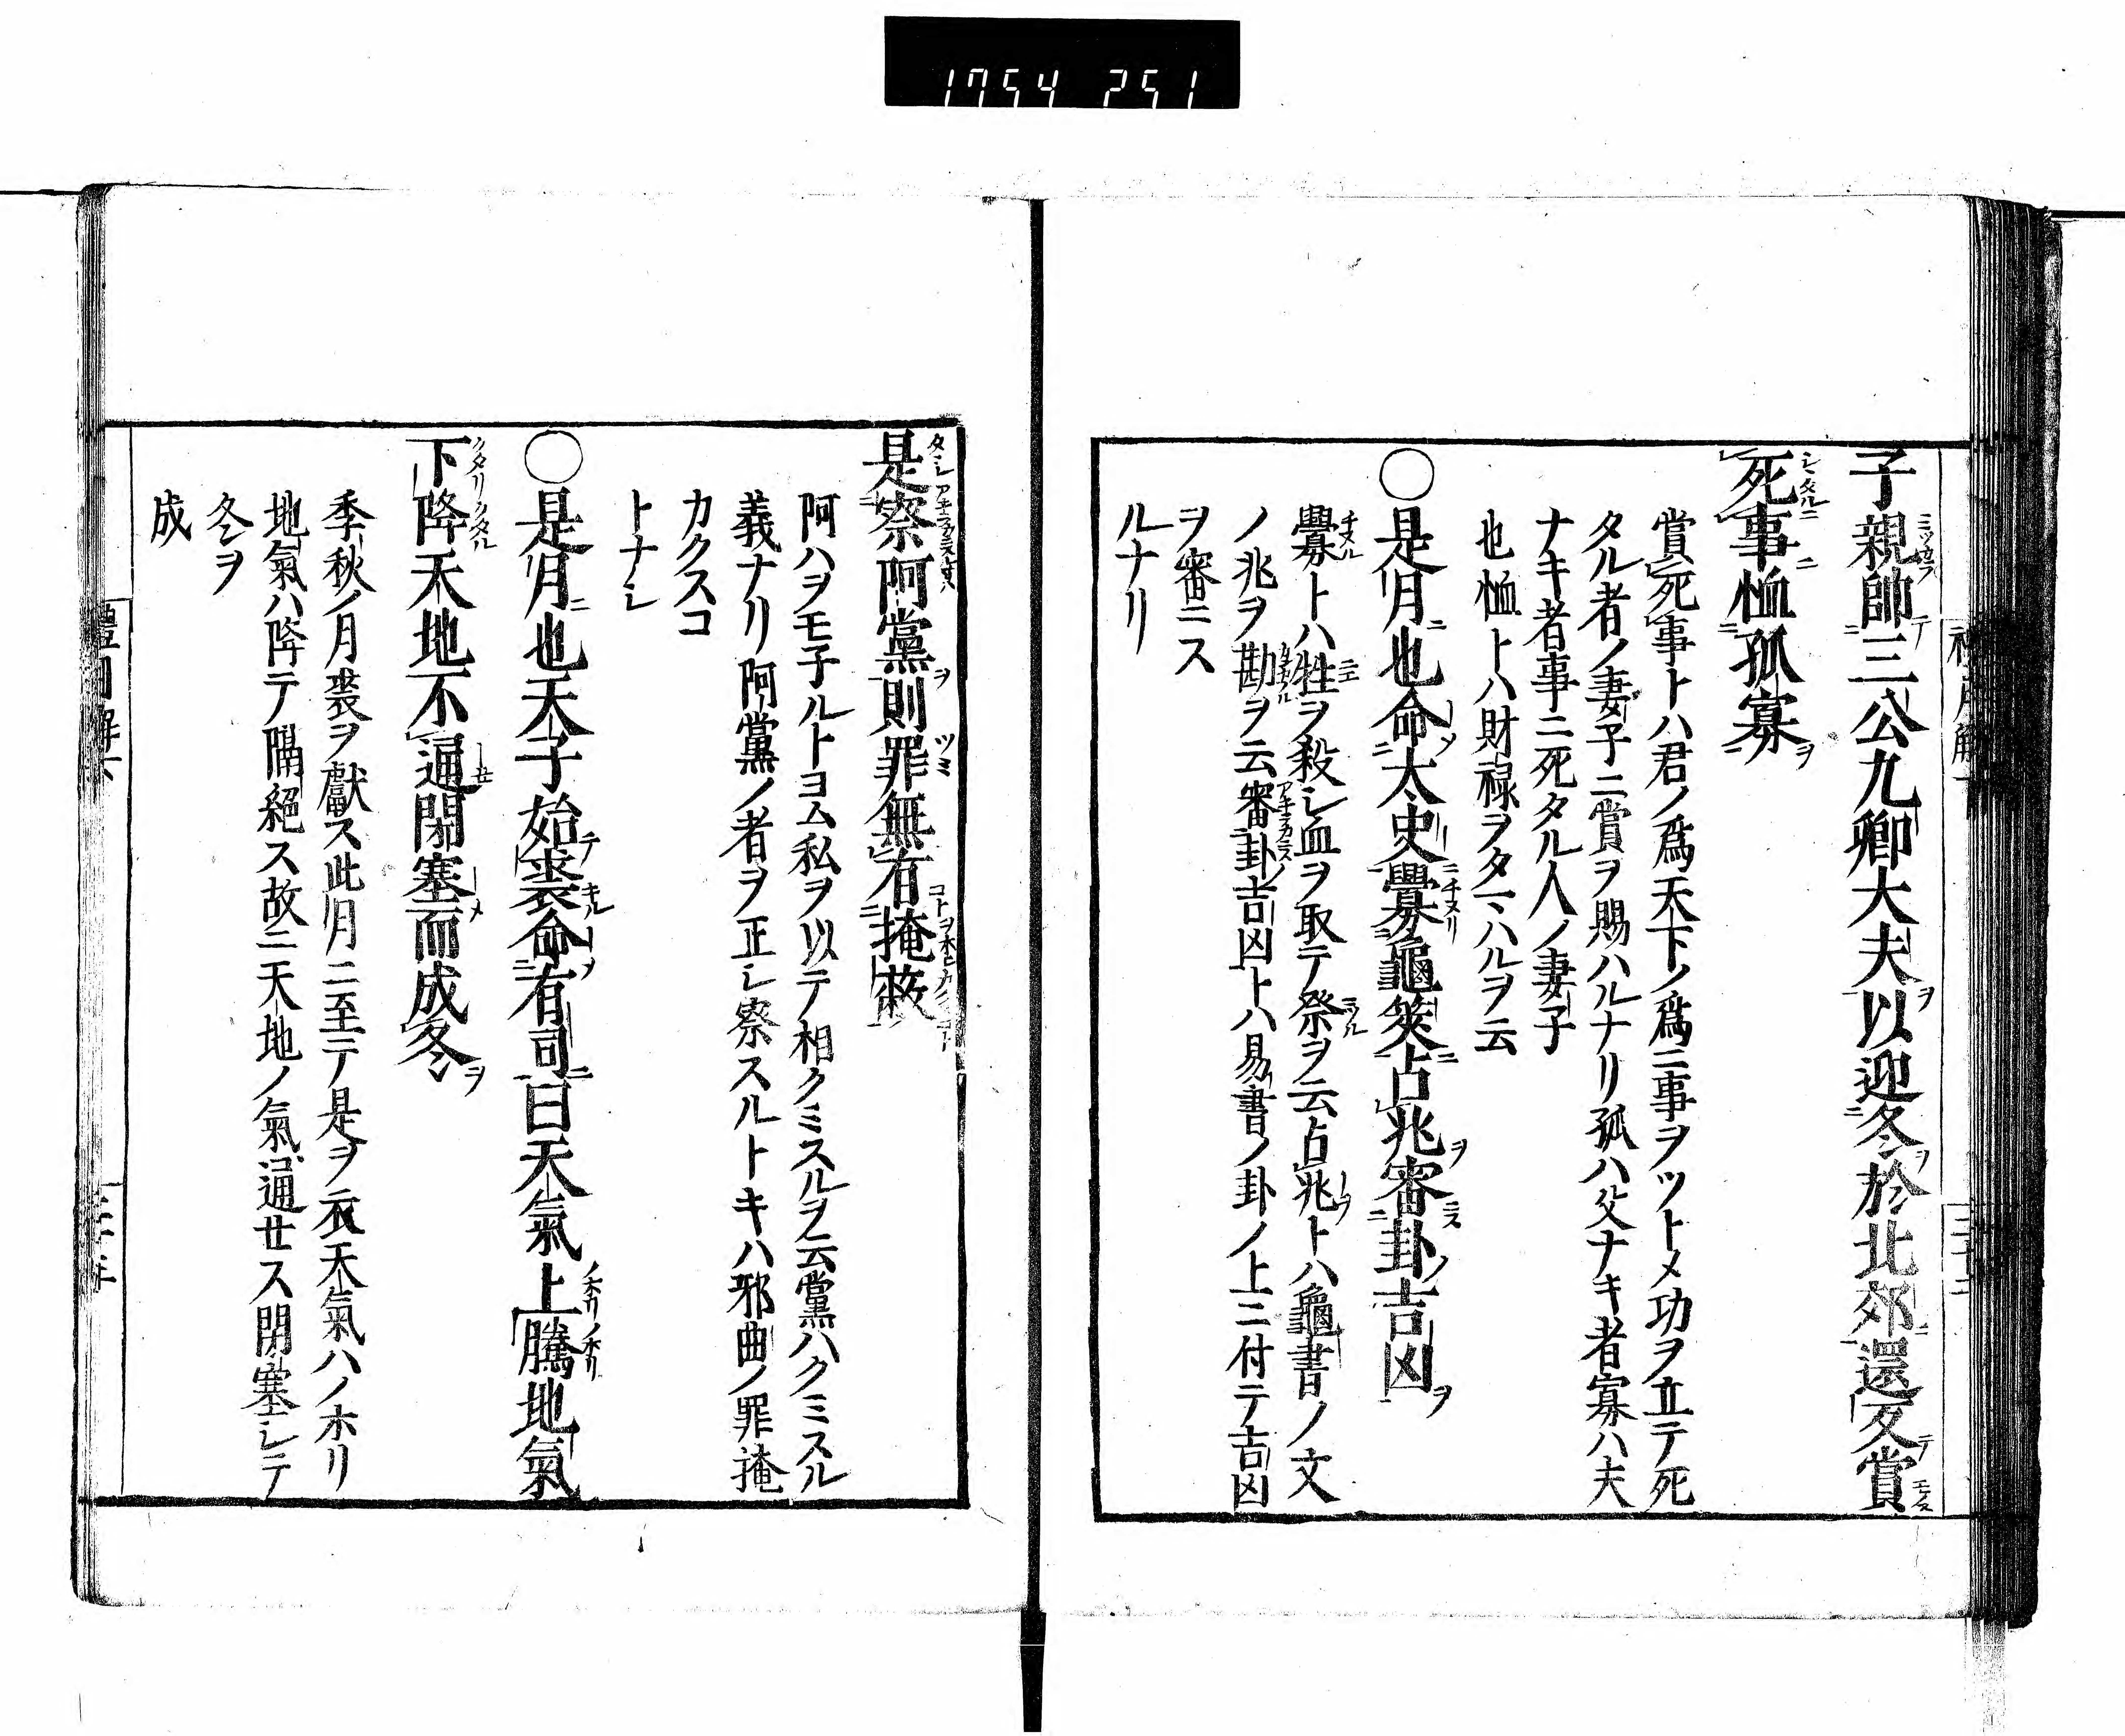 1754 251
子親帥三公九卿大夫以迎冬於北郊還反賞
死事恤孤寡
賞死事トハ君ノ爲天下ノ爲ニ事ヲツトメ功ヲ立テ死
タル者ノ妻子ニ賞ヲ賜ハルナリ孤ハ父ナキ者寡ハ夫
ナキ者事ニ死タル人ノ妻子
也恤トハ財禄ヲタマハルヲ云
○是月也命太史釁龜筴占兆審卦吉凶
釁トハ牲ヲ殺シ血ヲ取テ祭ヲ云占兆トハ龜書ノ文
ノ兆ヲ勘ヲ云審卦吉凶トハ易書ノ卦ノ上ニ付テ吉凶
ヲ審ニス
ルナリ
是察阿黨則罪無有掩蔽
阿ハヲモ子ルトヨム私ヲ以テ相クミスルヲ云黨ハクミスル
義ナリ阿黨ノ者ヲ正シ察スルトキハ邪曲ノ罪掩
カクスコ
トナシ
○是月也天子始裘命有司曰天氣上騰地氣
下降天地不通閉塞而成冬
季秋ノ月裘ヲ獻ス此月ニ至テ是ヲ衣天氣ハノホリ
地氣ハ降テ隔絕ス故ニ天地ノ氣通せス閉塞シテ
冬ヲ
成